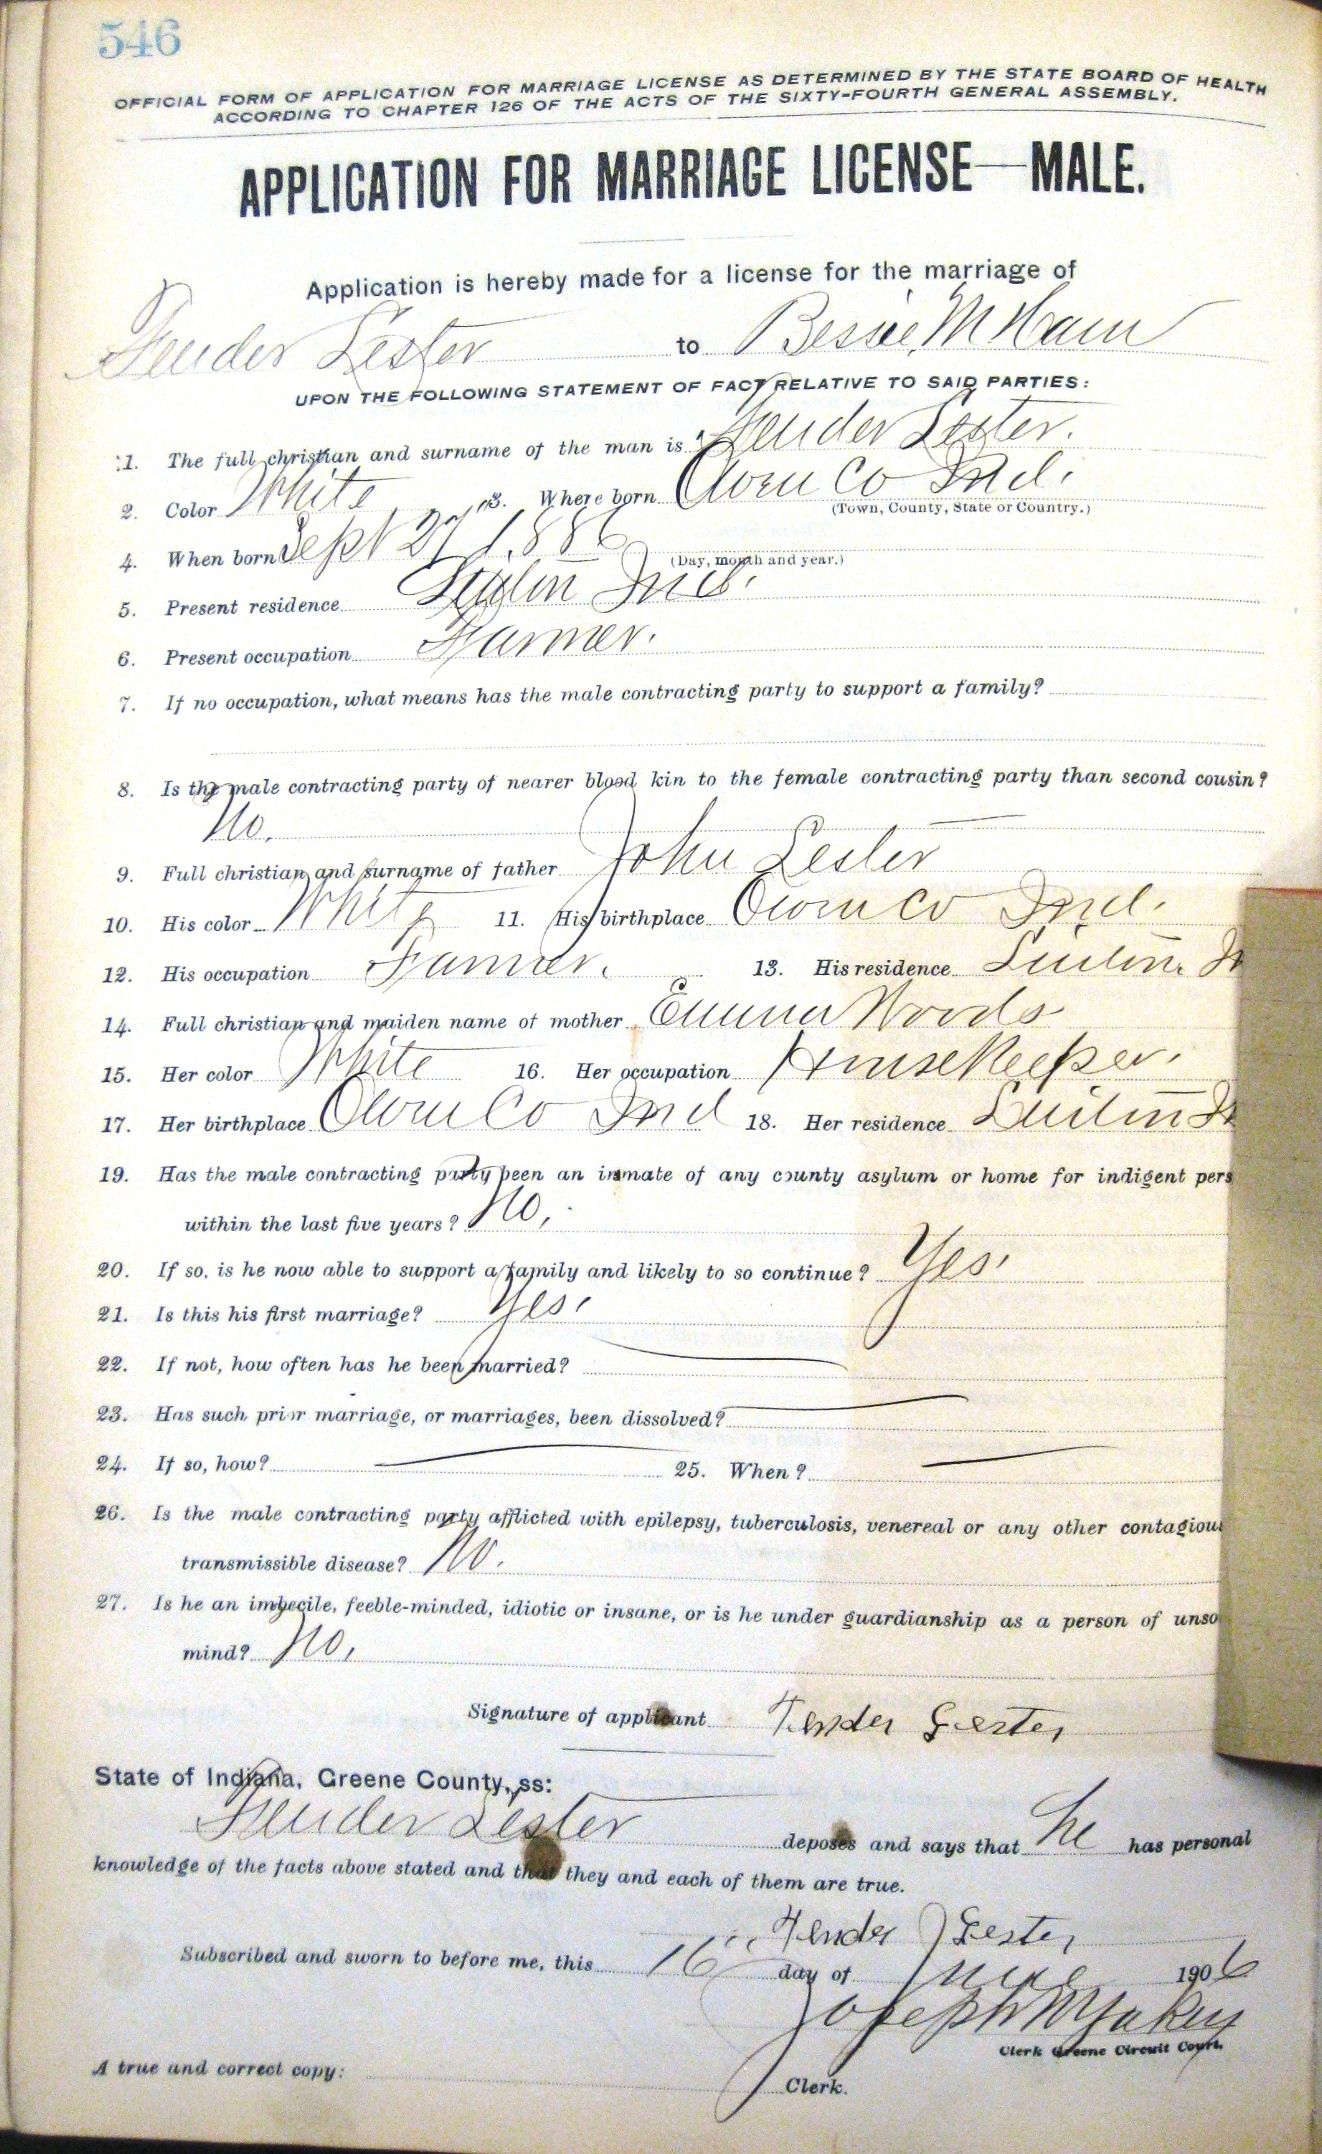 546
OFFICIAL FORM OF APPLICATION FOR MARRIAGE LICENSE AS DETERMINED BY THE STATE BOARD OF HEALTH
ACCORDING TO CHAPTER 126 OF THE ACTS OF THE SIXTY-FOURTH GENERAL ASSEMBLY.
APPLICATION FOR MARRIAGE LICENSE—MALE.
Application is hereby made for a license for the marriage of
Fender Lester to Bessie M Ham
UPON THE FOLLOWING STATEMENT OF FACT RELATIVE TO SAID PARTIES:
1. The full christian and surname of the man is Fender Lester.
2. Color White 3. Where born Owen Co Ind.
(Town, County, State or Country.)
4. When born Sept 27 1886
(Day, month and year.)
5. Present residence Ind.
6. Present occupation Farmer.
7. If no occupation, what means has the male contracting party to support a family?
8. Is the male contracting party of nearer blood kin to the female contracting party than second cousin?
No.
9. Full christian and surname of father John Lester
10. His color White 11. His birthplace Owen Co Ind.
12. His occupation Farmer. 13. His residence
14. Full christian and maiden name of mother Emma Woods
15. Her color White 16. Her occupation Housekeeper.
17. Her birthplace Owen Co Ind 18. Her residence
19. Has the male contracting party been an inmate of any county asylum or home for indigent pers
within the last five years? No.
20. If so, is he now able to support a family and likely to so continue? Yes.
21. Is this his first marriage? Yes.
22. If not, how often has he been married?
23. Has such prior marriage, or marriages, been dissolved?
24. If so, how? 25. When?
26. Is the male contracting party afflicted with epilepsy, tuberculosis, venereal or any other contagious
transmissible disease? No.
27. Is he an imbecile, feeble-minded, idiotic or insane, or is he under guardianship as a person of unso
mind? No.
Signature of applicant Fender Lester
State of Indiana, Greene County, ss:
Fender Lester deposes and says that he has personal
knowledge of the facts above stated and that they and each of them are true.
Fender Lester
Subscribed and sworn to before me, this 16 day of June 1906
Joseph M Yakey
Clerk Greene Circuit Court.
A true and correct copy:
Clerk.